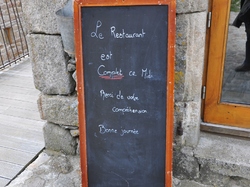 Le Restaurant
est
Complet ce Midi
Merci de votre
compréhension
Bonne journée